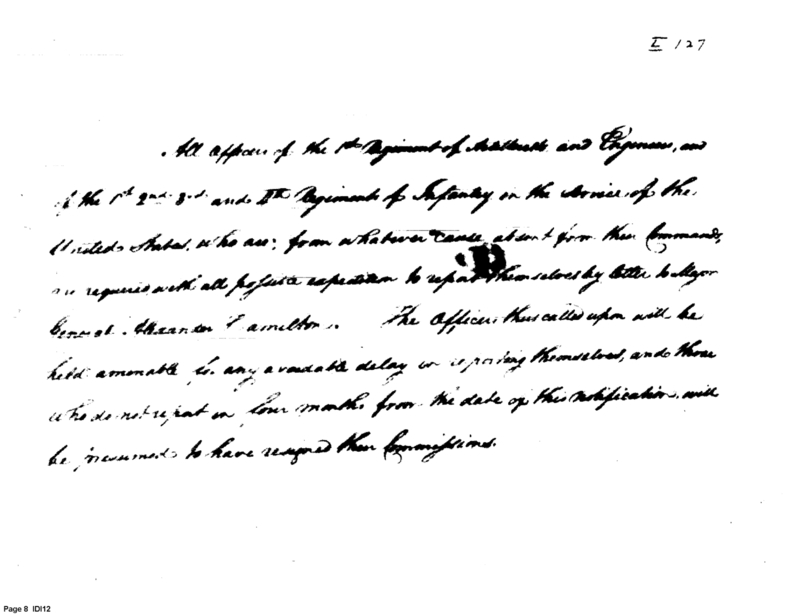 I 127
All Officers of the 1st Regiment of Artillerists and Engineers, and
of the 1st 2nd 3rd and 4th Regiments of Infantry in the Service of the
United States, who are, from whatever cause, absent from their Commands,
are required with all possible expedition to report themselves by letter to Major
General Alexander Hamilton. The Officers thus called upon will be
held amenable for any avoidable delay in reporting themselves, and those
who do not report in four months from the date of this notification, will
be presumed to have resigned their Commissions.
Page 8 IDI12